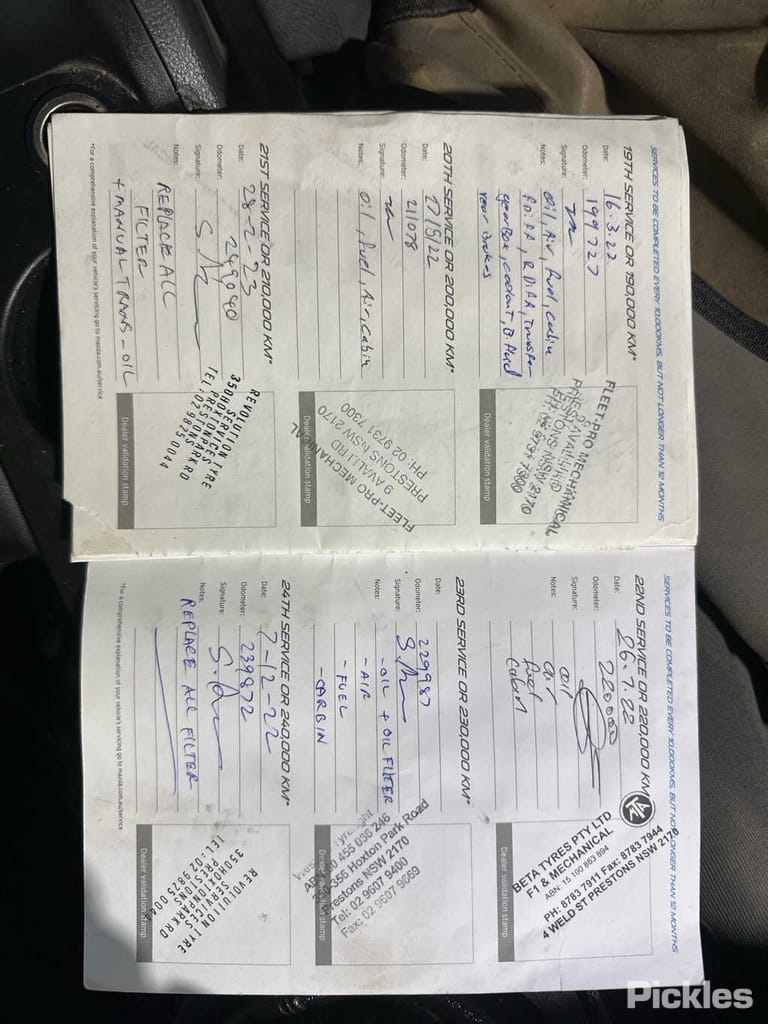 SERVICES TO BE COMPLETED EVERY 10,000KMS, BUT NOT LONGER THAN 12 MONTHS
19TH SERVICE OR 190,000 KM*
Date: 16.3.22
Odometer: 199727
Signature:
Notes: Oil, Air, fuel, cabin
gearBox, coolant, B. fluid
rear brakes
FLEET-PRO MECHANICAL
Dealer validation stamp
20TH SERVICE OR 200,000 KM*
Date: 17/5/22
Odometer: 211078
Signature:
Notes: oil, fuel, Air, cabin
FLEET-PRO MECHANICAL
9 AVALLI RD
PRESTONS NSW 2170
PH: 02 9731 7300
Dealer validation stamp
21ST SERVICE OR 210,000 KM*
Date: 28-2-23
Odometer: 249040
Signature:
Notes: REPLACE ALL
FILTER
+ MANUAL TRANS-OIL
REVOLUTION TYRE
TEL: 02 9825 0044
Dealer validation stamp
*For a comprehensive explanation of your vehicle's servicing go to mazda.com.au/service
SERVICES TO BE COMPLETED EVERY 10,000KMS, BUT NOT LONGER THAN 12 MONTHS
22ND SERVICE OR 220,000 KM*
Date: 26.7.22
Odometer: 220000
Signature:
Notes: oil
air
fuel
Cabin
BETA TYRES PTY LTD
F1 & MECHANICAL
ABN: 15 100 863 894
PH: 8783 7911 Fax: 8783 7944
4 WELD ST PRESTONS NSW 2170
Dealer validation stamp
23RD SERVICE OR 230,000 KM*
Date:
Odometer: 229987
Signature:
Notes: - OIL + OIL FILTER
- AIR
- FUEL
- CARBIN
455 036 246
356 Hoxton Park Road
Prestons NSW 2170
Tel: 02 9607 9400
Fax: 02 9607 9669
Dealer validation stamp
24TH SERVICE OR 240,000 KM*
Date: 7-12-22
Odometer: 239872
Signature:
Notes: REPLACE ALL FILTER
REVOLUTION TYRE
TEL: 02 9825 0044
Dealer validation stamp
*For a comprehensive explanation of your vehicle's servicing go to mazda.com.au/service
Pickles